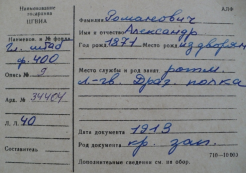 Наименование
госархива
ЦГВИА
АЛФ
Фамилия Романович
Имя и отчество Александр
Год рожд. 1871 Место рожд. из дворян
Название и № фонда
Гл. штаб
ф. 400
Опись № 9
Место службы и род занят. ротм.
л.-гв. Драг. полка
Арх. № 34404
Л. Л. 40
Дата документа 1913
Род документа кр. зап.
Составитель
710—10003
Дополнительные сведения см. на обор.